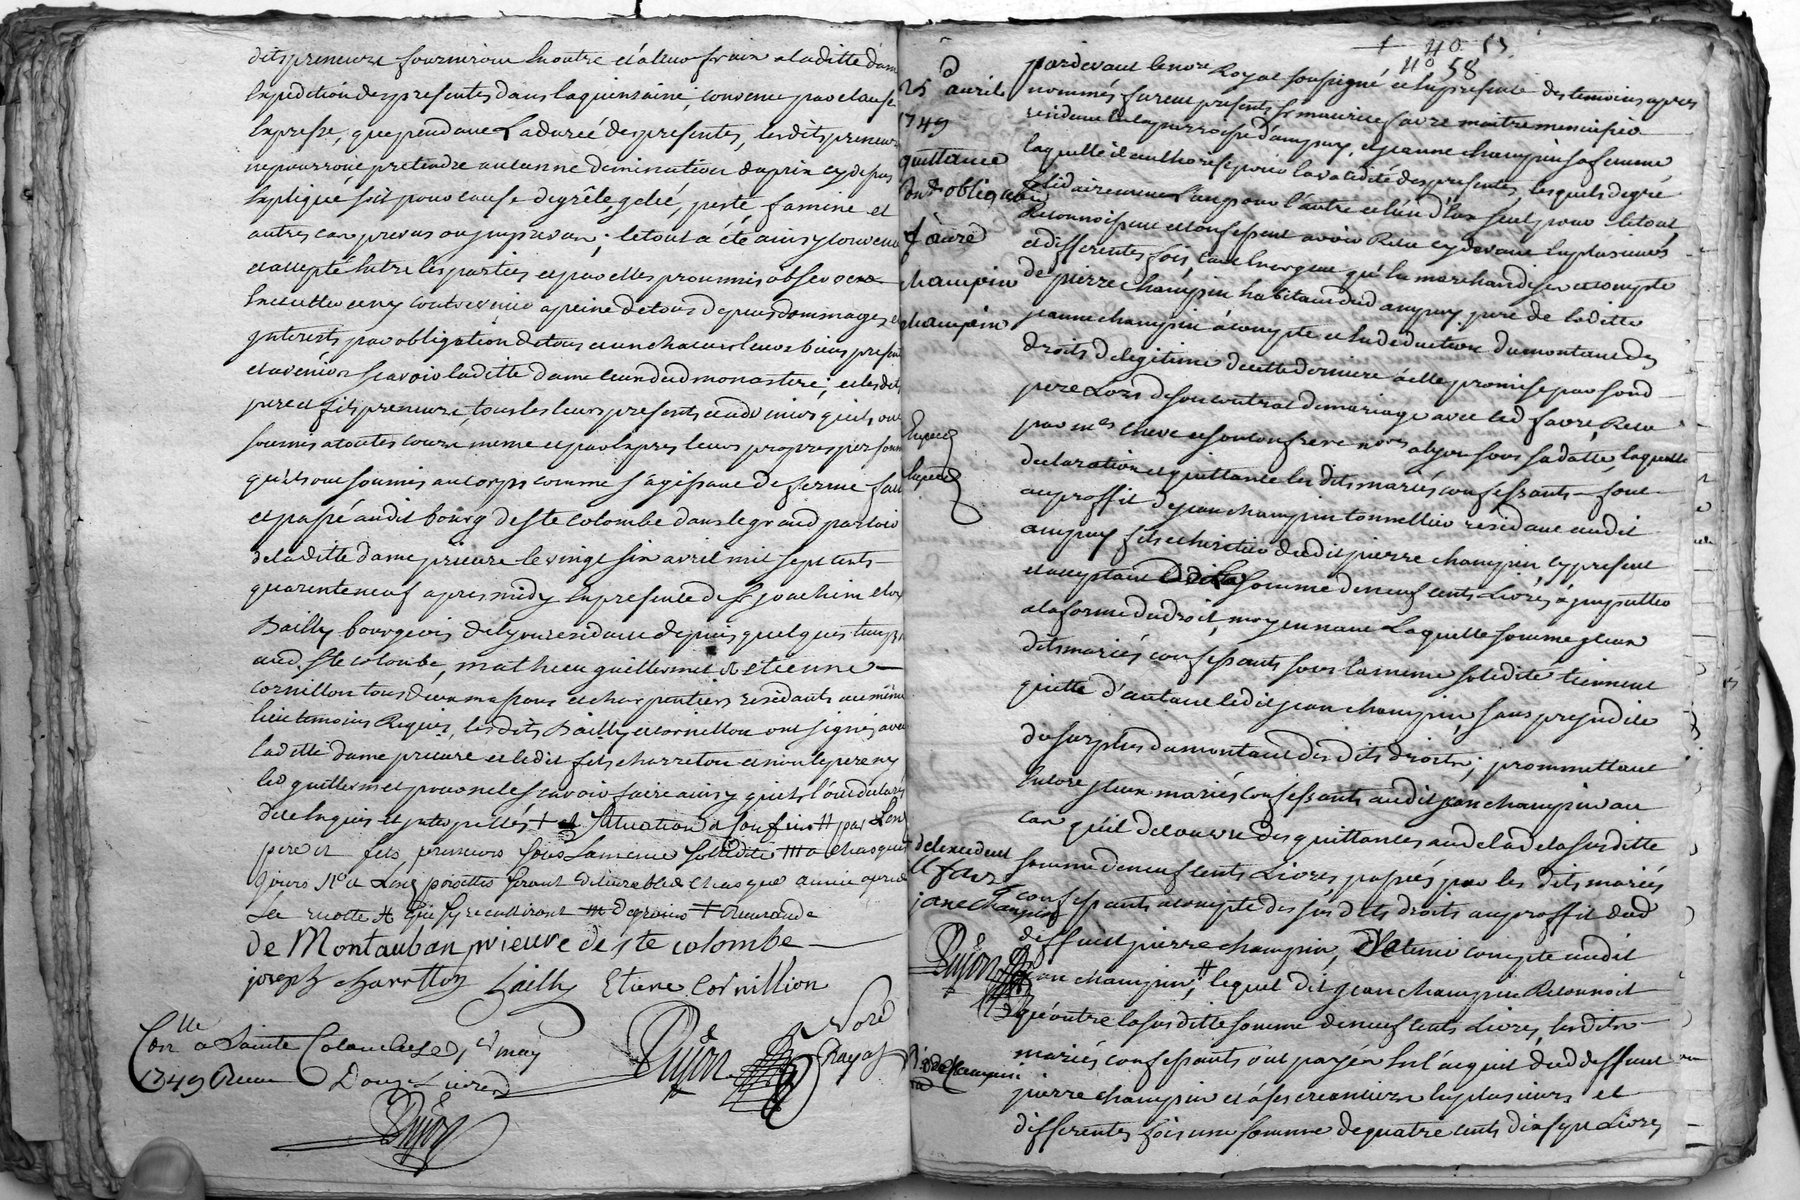 dits preneurs fourniront en outre et a leur frais a la ditte dame
Expedition des presentes dans la quinzaine, convenu par clause
Expresse, que pendant la durée des presentes, les dits preneurs
ne pourront pretendre aucunne diminution du prix cy depuis
Expliqué soit pour cause de grêle, gelée, peste famine et
autres cas prevus ou jmprevus; le tout a été ainsy convenu
et accepté entre les parties et par elles proummis observer
Executter et ny contrevenir a peine de tous depens dommages et
jnterests par obligation de tous et un chacun leurs biens present
et avenir scavoir la ditte dame ceux dud monastere; et les dits
pere et fils preneurs, tous les leurs presents et advenirs qu'ils ont
soumis a toutes cours meme et par Exprès leurs propres personnes
qu'ils ont soumis au corps comme s'agissant de ferme fait
et passé au dit bourg de ste colombe dans le grand parloir
de la ditte dame prieure le vingt six avril mil sept cents
quarente neuf apres midy En presence de sr joachim eloy
Bailly bourgeois de lyon residant depuis quelques temps
aud. ste colombe, mathieu guillermet & etienne
cornillon tous deux massons et charpentiers residants au même
lieu temoins Requis, les dits Bailly et cornillon ont signés avec
la ditte dame prieure et le dit fils charreton et non le pere ny
led guillermet pour ne le scavoir faire ainsy qu'ils l'ont declaré
de ce Enquis et jnterpellés + et situation & confins # par Les
pere et fils preneurs sous La meme solidité ## a chasque
jours N.a Les poisettes seront delivrables chasque année apres
La recolte # qui sy recueilliront ## de grains + Suivante
de Montauban prieure de ste colombe
joseph charetton Bailly Etiene Cornillion
Dujon Nore Royal
Conlle a Sainte Colombe Le 1er may
1749 Receu Douze Livres
Dujon
+ 40 13
No 58
25 avril
1749
quittance
Cont obligaon
faure
champin
champin
Expediée
Expediée
pardevant le nore Royal soussigné et En presence des temoins apres
nommés furent presents sr maurice favre maitre menuisier
residant En la parroisse d'ampuy, et jeanne champin sa femme,
laquelle il authorise pour la validité des presentes, lesquels de gré
solidairement l'un pour l'autre et l'un d'Eux seul pour le tout
Reconnoissent et confessent avoir Receu cy devant En plusieurs
et differentes fois, tant En argent qu'En marchandises et compte
de pierre champin habitant dud ampuy, pere de la ditte
jeanne champin a compte et En deduction du montant des
droits de legitime de cette derniere a elle promise par sond
pere Lors de son contrat de mariage avec led favre Receu
par mes cheve et son confrere nores a lyon sous sa datte, laquelle
declaration et quittance les dits mariés confessants font
au proffit de jean champin tonnellier residant audit
ampuy fils et heritier dudit pierre champin cy present
et acceptant de la somme de neuf cents Livres, a jmputter
a la forme du droit, moyennant laquelle somme yceux
dits mariés confessants sous la meme solidité tiennent
quitte d'autant le dit jean champin, sans prejudice
du surplus du montant des dits droits; prommettant
Encore yceux mariés confessants audit jean champin au
cas qu'il decouvre des quittances au dela de la susditte
somme de neuf cents Livres, passés par les dits mariés
confessants a compte des sus dits droits au proffit dud
deffunt pierre champin, d'En tenir compte audit
jean champin, # lequel dit jean champin Reconnoit
qu'outre la susditte somme de neuf cents Livres, les dits
mariés confessants ont payés En l'acquit dud deffunt
pierre champin et a ses creanciers En plusieurs et
differentes fois une somme de quatre cents dix sept Livres
Dujon